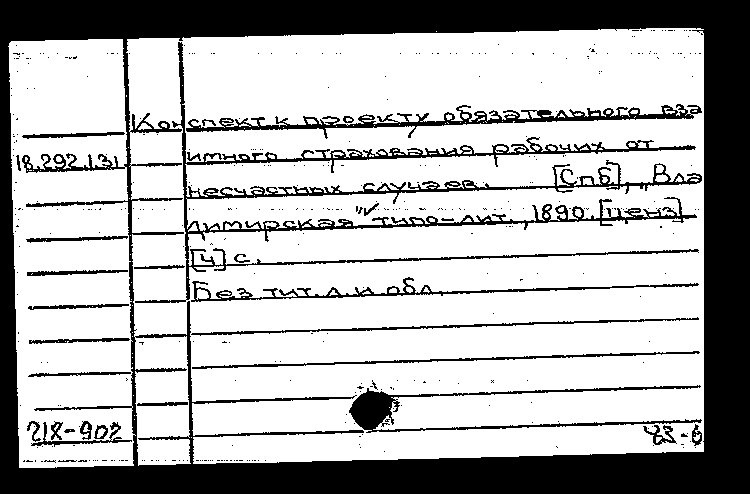 Конспект к проекту обязательного вза
18.292.1.31 имного страхования рабочих от
несчастных случаев. [Спб], "Вла
димирская" типо-лит., 1890. [ценз]
[4] с.
Без тит. л. и обл.
218-902